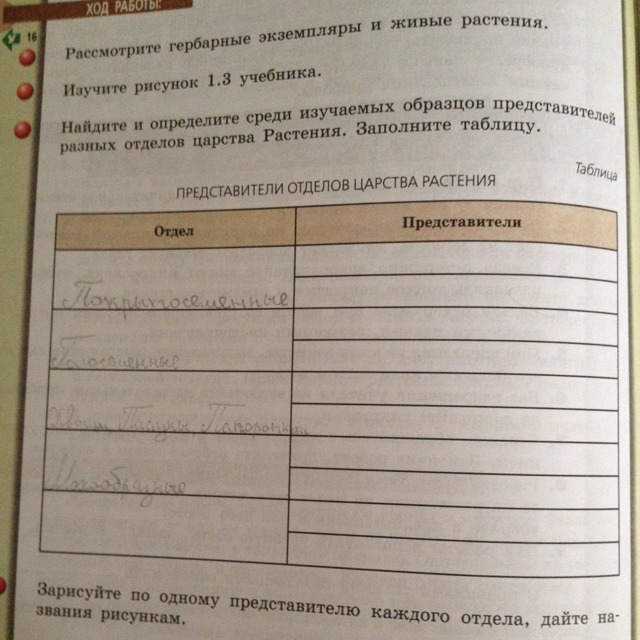 ХОД РАБОТЫ:
16
Рассмотрите гербарные экземпляры и живые растения.
Изучите рисунок 1.3 учебника.
Найдите и определите среди изучаемых образцов представителей
разных отделов царства Растения. Заполните таблицу.
Таблица
ПРЕДСТАВИТЕЛИ ОТДЕЛОВ ЦАРСТВА РАСТЕНИЯ
Отдел Представители
Покрытосеменные
Голосеменные
Хвощи, Плауны, Папоротники
Мохообразные
Зарисуйте по одному представителю каждого отдела, дайте на-
звания рисункам.